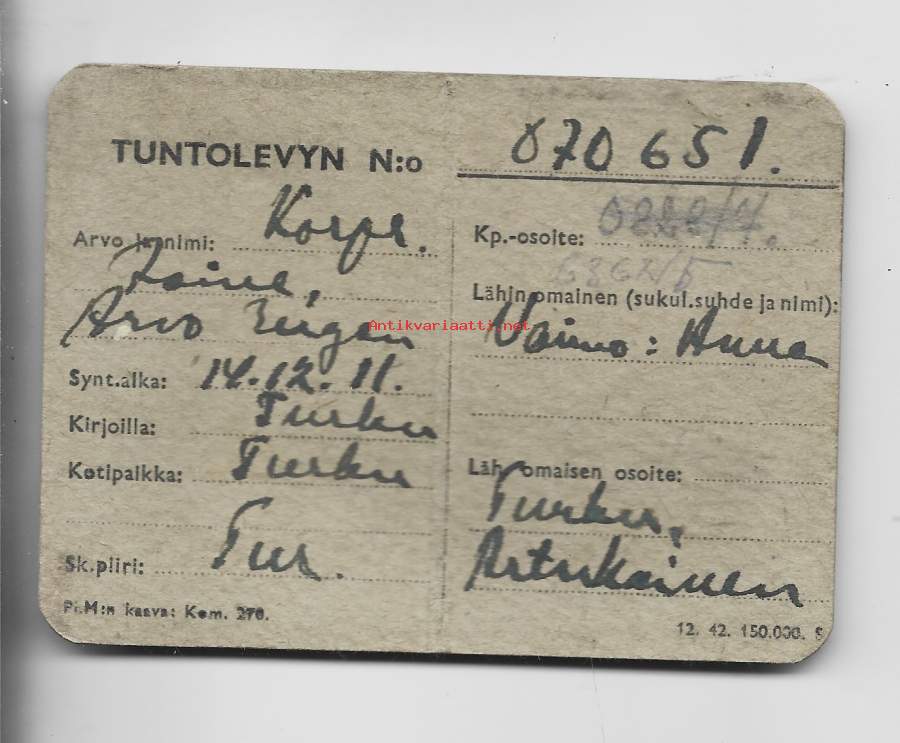 TUNTOLEVYN N:o 070651.
Arvo ja nimi: Korpr.
Laine,
Arvo Eugen
Synt.aika: 14.12.11.
Kirjoilla: Turku
Kotipaikka: Turku
Sk.piiri: Tur.
Pl.M:n kaava: Kom. 270.
Kp.-osoite:
Lähin omainen (sukul.suhde ja nimi):
Vaimo: Anna
Läh. omaisen osoite:
Turku,
Artukainen
12. 42. 150.000. S
Antikvariaatti.net